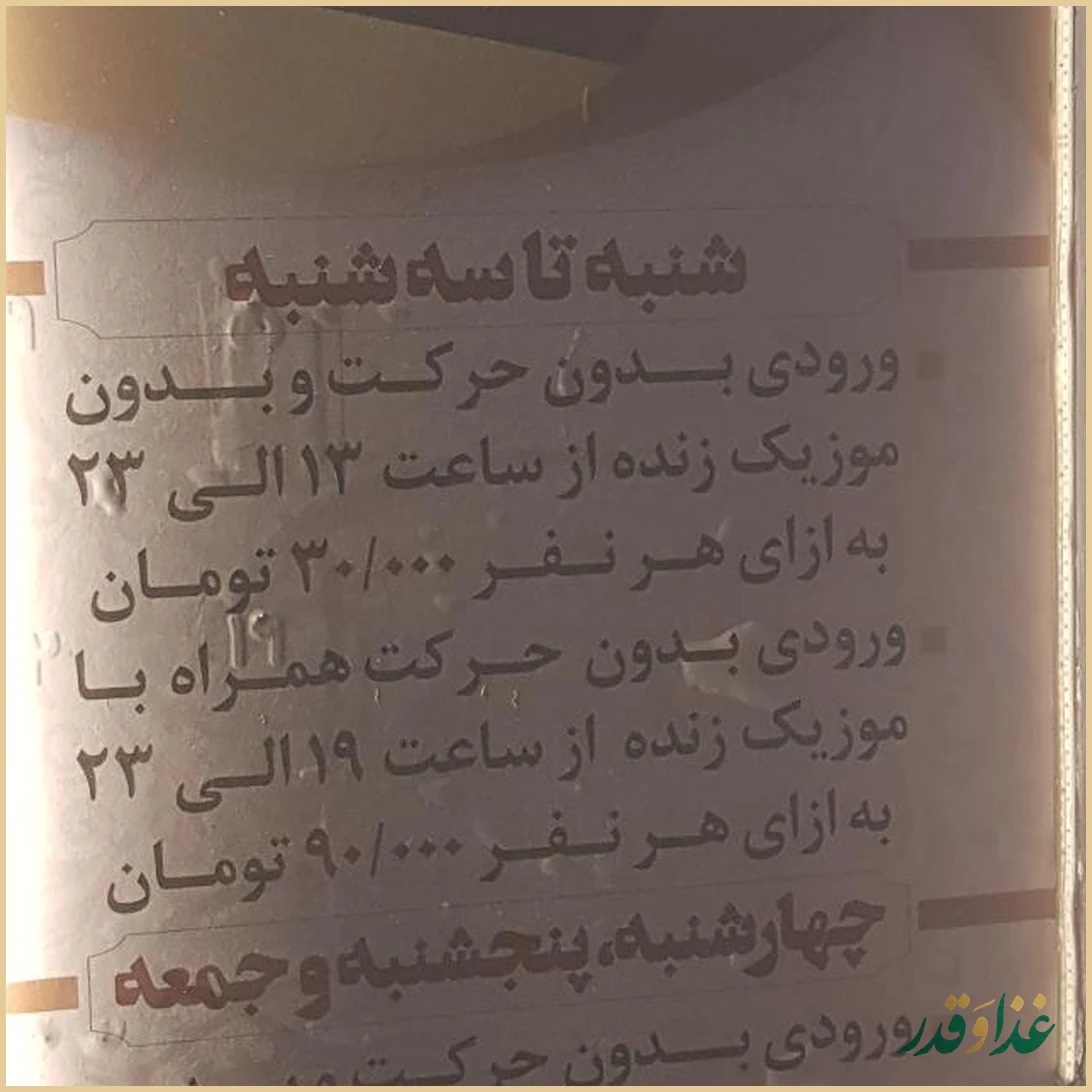 شنبه تا سه شنبه
ورودی بدون حرکت و بدون
موزیک زنده از ساعت ۱۳ الی ۲۳
به ازای هر نفر ۳۰/۰۰۰ تومان
ورودی بدون حرکت همراه با
موزیک زنده از ساعت ۱۹ الی ۲۳
به ازای هر نفر ۹۰/۰۰۰ تومان
چهارشنبه، پنجشنبه و جمعه
ورودی بدون حرکت و
غذا وَ قدر